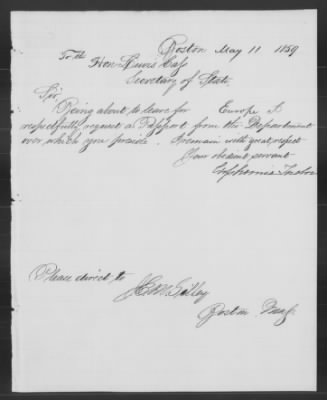 Boston May 11 1859
To the
Hon Lewis Cass
Secretary of State.
Sir
Being about to leave for Europe I
respectfully request a Passport from the Department
over which you preside. I remain with great respect
Your obedient servant
Please direct to
Boston Mass